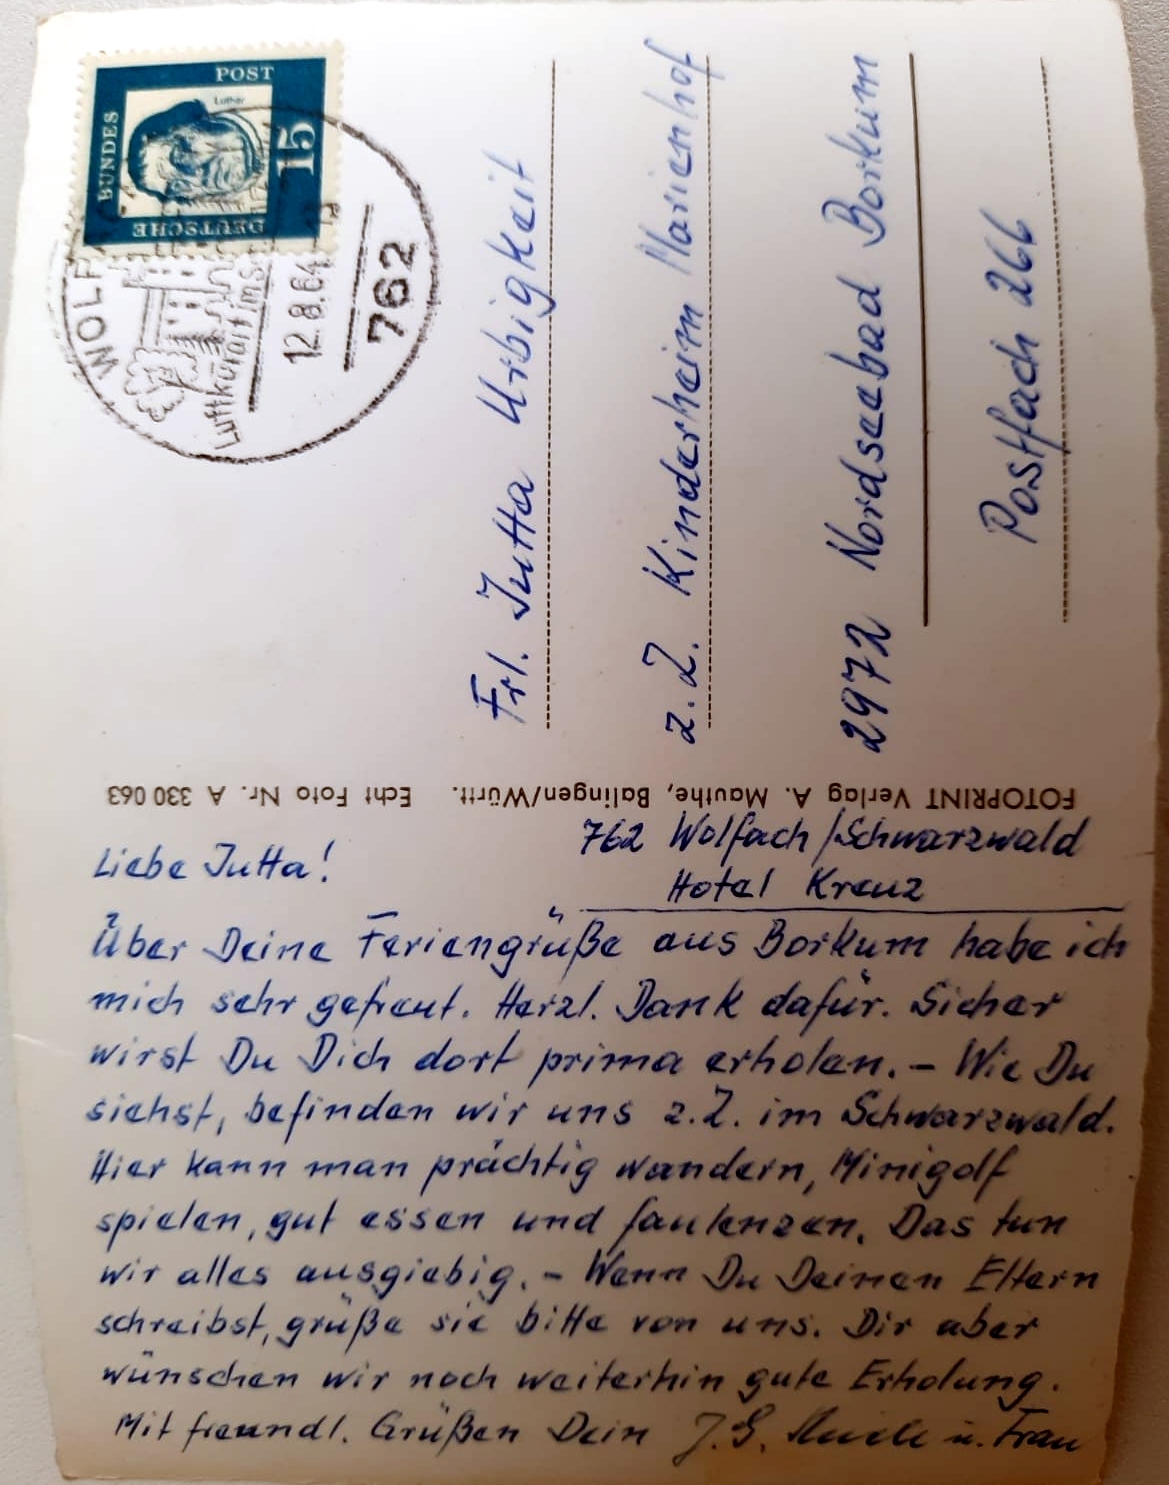 DEUTSCHE
BUNDES
POST
Luther
15
WOLF
Luftkurort im S
12.8.64
762
Frl. Jutta Urbigkeit
z. Z. Kinderheim Marienhof
2972 Nordseebad Borkum
Postfach 266
FOTOPRINT Verlag A. Mauthe, Balingen/Württ. Echt Foto Nr. A 330 063
762 Wolfach/Schwarzwald
Hotel Kreuz
Liebe Jutta!
Über Deine Feriengrüße aus Borkum habe ich
mich sehr gefreut. Herzl. Dank dafür. Sicher
wirst Du Dich dort prima erholen. – Wie Du
siehst, befinden wir uns z. Z. im Schwarzwald.
Hier kann man prächtig wandern, Minigolf
spielen, gut essen und faulenzen. Das tun
wir alles ausgiebig. – Wenn Du Deinen Eltern
schreibst, grüße sie bitte von uns. Dir aber
wünschen wir noch weiterhin gute Erholung.
Mit freundl. Grüßen Dein J. G. u. Frau